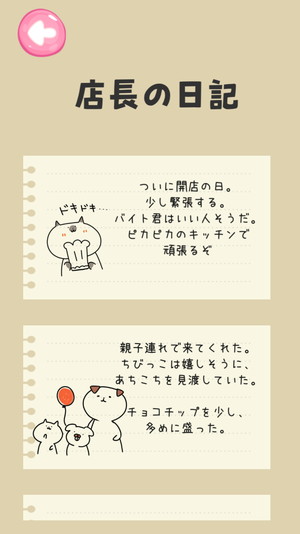 店長の日記
ついに開店の日。
少し緊張する。
バイト君はいい人そうだ。
ピカピカのキッチンで
頑張るぞ
ドキドキ…
親子連れで来てくれた。
ちびっこは嬉しそうに、
あちこちを見渡していた。
チョコチップを少し、
多めに盛った。